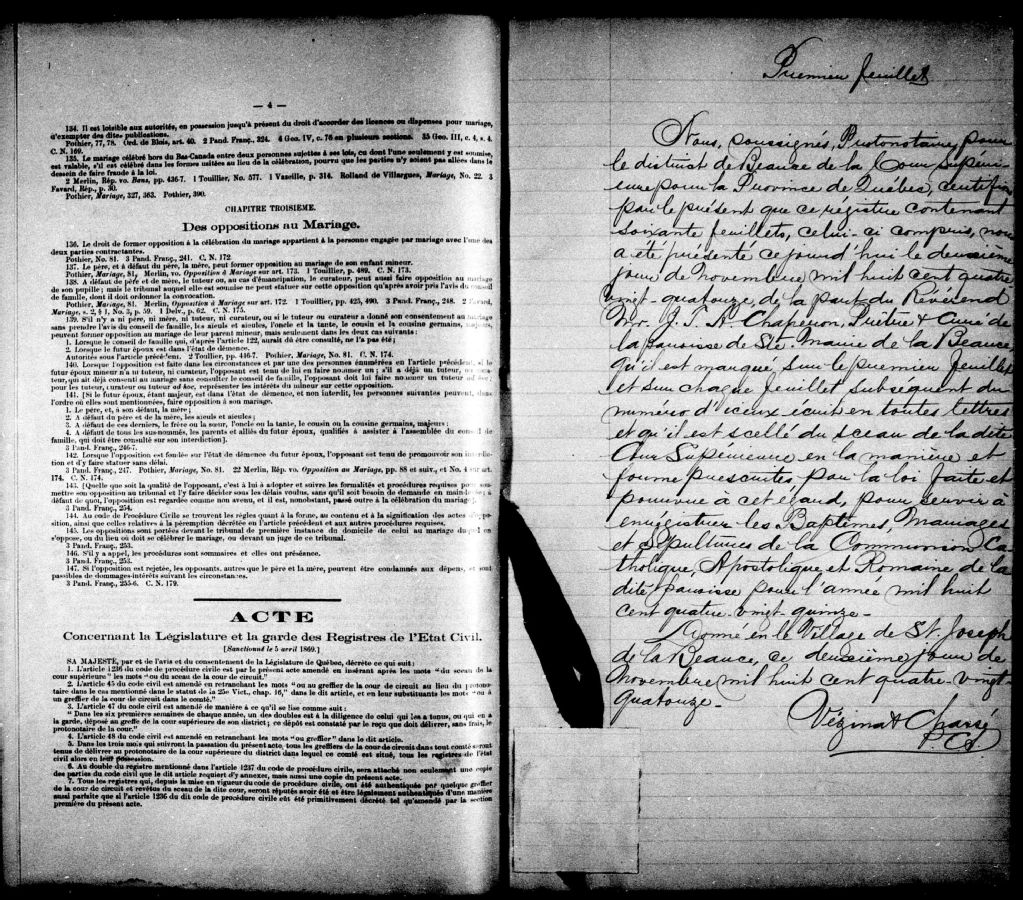 — 4 —
134. Il est loisible aux autorités, en possession jusqu'à présent du droit d'accorder des licences ou dispenses pour mariage,
d'exempter des dites publications.
Pothier, 77, 78. Ord. de Blois, art. 40. 2 Pand. Franç., 324. 4 Geo. IV, c. 76 en plusieurs sections. 35 Geo. III, c. 4, s. 4.
C. N. 169.
135. Le mariage célébré hors du Bas-Canada entre deux personnes sujettes à ses lois, ou dont l'une seulement y est soumise,
est valable, s'il est célébré dans les formes usitées au lieu de la célébration, pourvu que les parties n'y soient pas allées dans le
dessein de faire fraude à la loi.
2 Merlin, Rép. vo. Bans, pp. 436-7. 1 Touiller, No. 577. 1 Vazeille, p. 314. Rolland de Villargues, Mariage, No. 22. 3
Favard, Rép., p. 30.
Pothier, Mariage, 327, 363. Pothier, 390.
CHAPITRE TROISIÈME.
Des oppositions au Mariage.
136. Le droit de former opposition à la célébration du mariage appartient à la personne engagée par mariage avec l'une des
deux parties contractantes.
Pothier, No. 81. 3 Pand. Franç., 241. C. N. 172.
137. Le père, et à défaut du père, la mère, peut former opposition au mariage de son enfant mineur.
Pothier, Mariage, 81, Merlin, vo. Opposition à Mariage sur art. 173. 1 Touillier, p. 489. C. N. 173.
138. A défaut de père et de mère, le tuteur ou, au cas d'émancipation, le curateur, peut aussi faire opposition au mariage
de son pupille ; mais le tribunal auquel elle est soumise ne peut statuer sur cette opposition qu'après avoir pris l'avis du conseil
de famille, dont il doit ordonner la convocation.
Pothier, Mariage, 81. Merlin, Opposition à Mariage sur art. 172. 1 Touillier, pp. 425, 490. 3 Pand. Franç., 248. 2 Favard,
Mariage, s. 2, § 1, No. 3, p. 59. 1 Delv., p. 62. C. N. 175.
139. S'il n'y a ni père, ni mère, ni tuteur, ni curateur, ou si le tuteur ou curateur a donné son consentement au mariage
sans prendre l'avis du conseil de famille, les aïeuls et aïeules, l'oncle et la tante, le cousin et la cousine germains, majeurs,
peuvent former opposition au mariage de leur parent mineur, mais seulement dans les deux cas suivants :
1. Lorsque le conseil de famille qui, d'après l'article 122, aurait dû être consulté, ne l'a pas été ;
2. Lorsque le futur époux est dans l'état de démence.
Autorités sous l'article précédent. 2 Touillier, pp. 446-7. Pothier, Mariage, No. 81. C. N. 174.
140. Lorsque l'opposition est faite dans les circonstances et par une des personnes énumérées en l'article précédent, si le
futur époux mineur n'a ni tuteur, ni curateur, l'opposant est tenu de lui en faire nommer un ; s'il a déjà un tuteur,
teur, qui ait déjà consenti au mariage sans consulter le conseil de famille, l'opposant doit lui faire nommer un tuteur ad hoc,
pour les tuteur, curateur ou tuteur ad hoc, représenter les intérêts du mineur sur cette opposition.
141. [Si le futur époux, étant majeur, est dans l'état de démence, et non interdit, les personnes suivantes peuvent, dans
l'ordre où elles sont mentionnées, faire opposition à son mariage.
1. Le père, et, à son défaut, la mère ;
2. A défaut du père et de la mère, les aïeuls et aïeules ;
3. A défaut de ces derniers, le frère ou la sœur, l'oncle ou la tante, le cousin ou la cousine germains, majeurs ;
4. A défaut de tous les susnommés, les parents et alliés du futur époux, qualifiés à assister à l'assemblée du conseil de
famille, qui doit être consulté sur son interdiction].
3 Pand. Franç., 246-7.
142. Lorsque l'opposition est fondée sur l'état de démence du futur époux, l'opposant est tenu de promouvoir son interdic-
tion et d'y faire statuer sans délai.
3 Pand. Franç., 247. Pothier, Mariage, No. 81. 22 Merlin, Rép. vo. Opposition au Mariage, pp. 88 et suiv., et No. 4 sur art.
174. C. N. 174.
143. [Quelle que soit la qualité de l'opposant, c'est à lui à adopter et suivre les formalités et procédures requises pour sou-
mettre son opposition au tribunal et l'y faire décider sous les délais voulus, sans qu'il soit besoin de demande en main-levée ; à
défaut de quoi, l'opposition est regardée comme non avenu, et il est, nonobstant, passé outre à la célébration du mariage].
3 Pand. Franç., 254.
144. Au code de Procédure Civile se trouvent les règles quant à la forme, au contenu et à la signification des actes d'oppo-
sition, ainsi que celles relatives à la péremption décrétée en l'article précédent et aux autres procédures requises.
145. Les oppositions sont portées devant le tribunal de première instance du domicile de celui au mariage duquel on
s'oppose, ou du lieu où doit se célébrer le mariage, ou devant un juge de ce tribunal.
3 Pand. Franç., 253.
146. S'il y a appel, les procédures sont sommaires et elles ont préséance.
3 Pand. Franç., 253.
147. Si l'opposition est rejetée, les opposants, autres que le père et la mère, peuvent être condamnés aux dépens, et sont
passibles de dommages-intérêts suivant les circonstances.
3 Pand. Franç., 255-6. C. N. 179.
ACTE
Concernant la Législature et la garde des Registres de l'Etat Civil.
[Sanctionné le 5 avril 1869.]
SA MAJESTÉ, par et de l'avis et du consentement de la Législature de Québec, décrète ce qui suit :
1. L'article 1236 du code de procédure civile est par le présent acte amendé en insérant après les mots "du sceau de la
cour supérieure" les mots "ou du sceau de la cour de circuit."
2. L'article 45 du code civil est amendé en retranchant les mots "ou au greffier de la cour de circuit au lieu du protono-
taire dans le cas mentionné dans le statut de la 25e Vict., chap. 16," dans le dit article, et en leur substituants les mots "ou à
un greffier de la cour de circuit dans le comté."
3. L'article 47 du code civil est amendé de manière à ce qu'il se lise comme suit :
"Dans les six premières semaines de chaque année, un des doubles est à la diligence de celui qui les a tenus, ou qui en a
la garde, déposé au greffe de la cour supérieure de son district ; ce dépôt est constaté par le reçu que doit délivrer, sans frais, le
protonotaire de la cour."
4. L'article 48 du code civil est amendé en retranchant les mots "ou greffier" dans le dit article.
5. Dans les trois mois qui suivront la passation du présent acte, tous les greffiers de la cour de circuit dans tout comté seront
tenus de délivrer au protonotaire de la cour supérieure du district dans lequel ce comté est situé, tous les registres de l'état
civil alors en leur possession.
6. Au double du registre mentionné dans l'article 1237 du code de procédure civile, sera attaché non seulement une copie
des parties du code civil que le dit article requiert d'y annexer, mais aussi une copie du présent acte.
7. Tous les registres qui, depuis la mise en vigueur du code de procédure civile, ont été authentiqués par quelque greffier
de la cour de circuit et revêtus du sceau de la dite cour, seront réputés avoir été et être légalement authentiqués d'une manière
aussi parfaite que si l'article 1236 du dit code de procédure civile eût été primitivement décrété tel qu'amendé par la section
première du présent acte.
Premier feuillet
Nous, soussignés, Protonotaire, pour
le district de Beauce de la Cour Supéri-
eure pour la Province de Québec, certifions
par le présent que ce régistre contenant
soixante feuillets, celui-ci compris, nous
a été présenté ce jour d'hui le deuxième
jour de novembre mil huit cent quatre
vingt-quatorze, de la part du Révérend
Mr. J. T. A. Chaperon, Prêtre & Curé de
la paroisse de Ste. Marie de la Beauce
qu'il est marqué sur le premier feuillet
et sur chaque feuillet subséquent du
numéro d'iceux écrit en toutes lettres
et qu'il est scellé du sceau de la dite
Cour Supérieure en la manière et
forme prescrites par la loi faite et
pourvue à cet égard, pour servir à
enrégistrer les Baptêmes, Mariages
et Sépultures de la Communion Ca-
tholique, Apostolique et Romaine de la
dite paroisse pour l'année mil huit
cent quatre-vingt-quinze-
Donné en le Village de St. Joseph
de la Beauce, ce deuxième jour de
Novembre mil huit cent quatre-vingt-
quatorze-
Vézina &